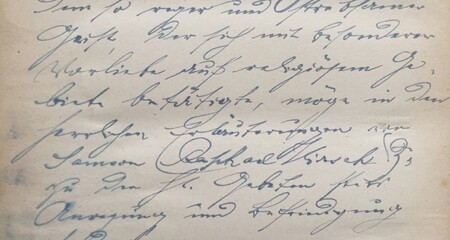 Dein so reger und strebsamer
Geist, der sich mit besonderer
Vorliebe auf religiösem Ge-
biete betätigte, möge in den
herrlichen Erläuterungen von
Samson Raphael Hirsch
zu den Gebeten stets
Anregung und Befriedigung